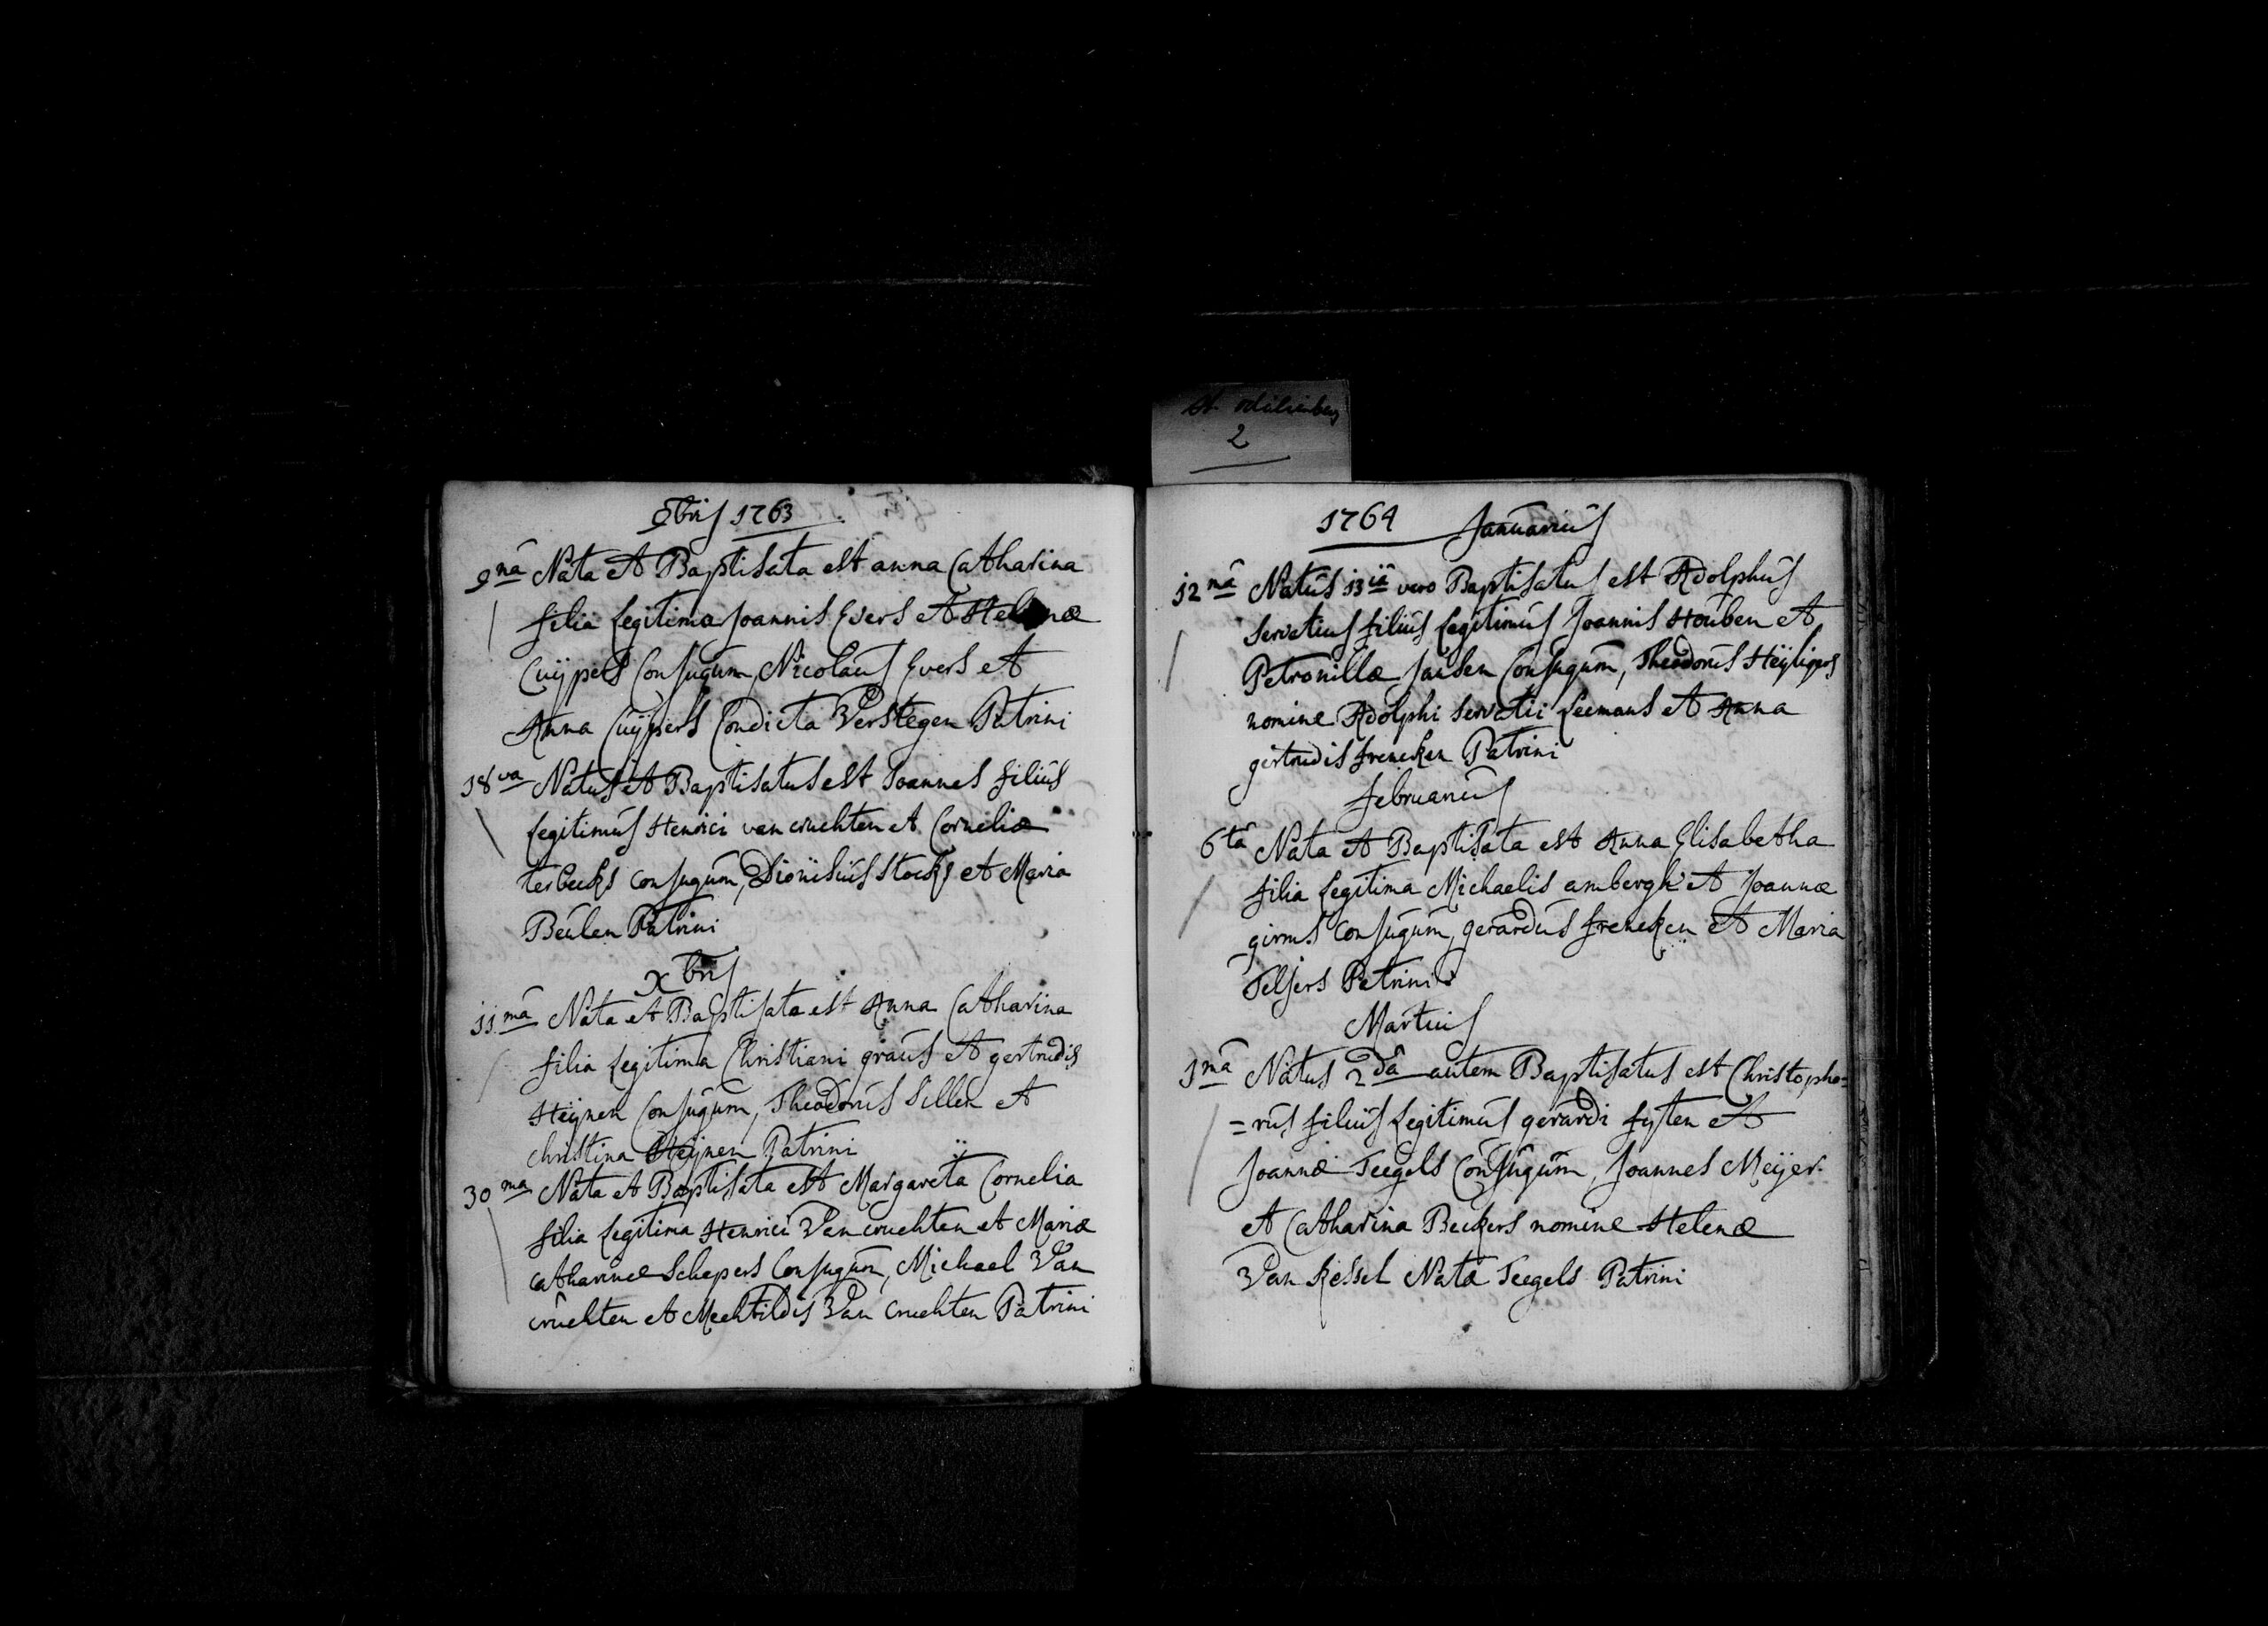 St. odilienberg
2
9bris 1763
9na Nata et Baptisata est anna Catharina
filia Legitima Joannis Evers et Helenæ
Cuÿpers Conjugum, Nicolaus Evers et
Anna Cuÿpers Condicta Verstegen Patrini
18va Natus et Baptisatus est Joannes filius
Legitimus Henrici van cruchten et Corneliæ
terbecks conjugum, Dionisius Stocks et Maria
Beulen Patrini
Xbris
11ma Nata et Baptisata est Anna Catharina
filia Legitima Christiani graus et gertrudis
Heÿnen Conjugum, Theodorus Sillen et
christina Heÿnen Patrini
30ma Nata et Baptisata est Margareta Cornelia
filia Legitima Henrici Van cruchten et Mariæ
catharinæ Schepers Conjugum, Michael Van
cruchten et Mechtildis Van Cruchten Patrini
1764 Januarius
12ma Natus 13ia vero Baptisatus est Adolphus
Servatius filius Legitimus Joannis Houben et
Petronillæ Jansen Conjugum, Theodorus Heÿligers
nomine Adolphi Servatii Leemans et Anna
gertrudis frencken Patrini
februarius
6ta Nata et Baptisata est Anna Elisabetha
filia Legitima Michaelis ambergh et Joannæ
girms Conjugum, gerardus frencken et Maria
Peltsers Patrini
Martius
1ma Natus 2da autem Baptisatus est Christopho=
=rus filius Legitimus gerardi fyten et
Joannæ Teegels Conjugum, Joannes Meÿer
et Catharina Beckers nomine Helenæ
Van Kessel Natæ Teegels Patrini